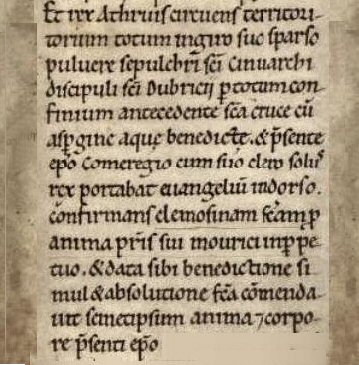 Et rex Athruis circuens territori-
torium totum ingiro suo sparso
puluere sepulchri sc̄i Cinuarchi
discipuli sc̄i Dubricii ꝑ totum con
finium antecedente sc̄a cruce cū
asꝑgine aque benedicte. & p̄sente
ep̄o Comeregio cum suo clero solū
rex portabat euangeliū indorso.
confirmans elemosinam fc̄am ꝑ
anima pr̄is sui mourici inꝑpe
tuo. & data sibi benedictione si
mul & absolutione fc̄a cōmenda
uit semetipsum anima ⁊ corpo
re p̄senti ep̄o